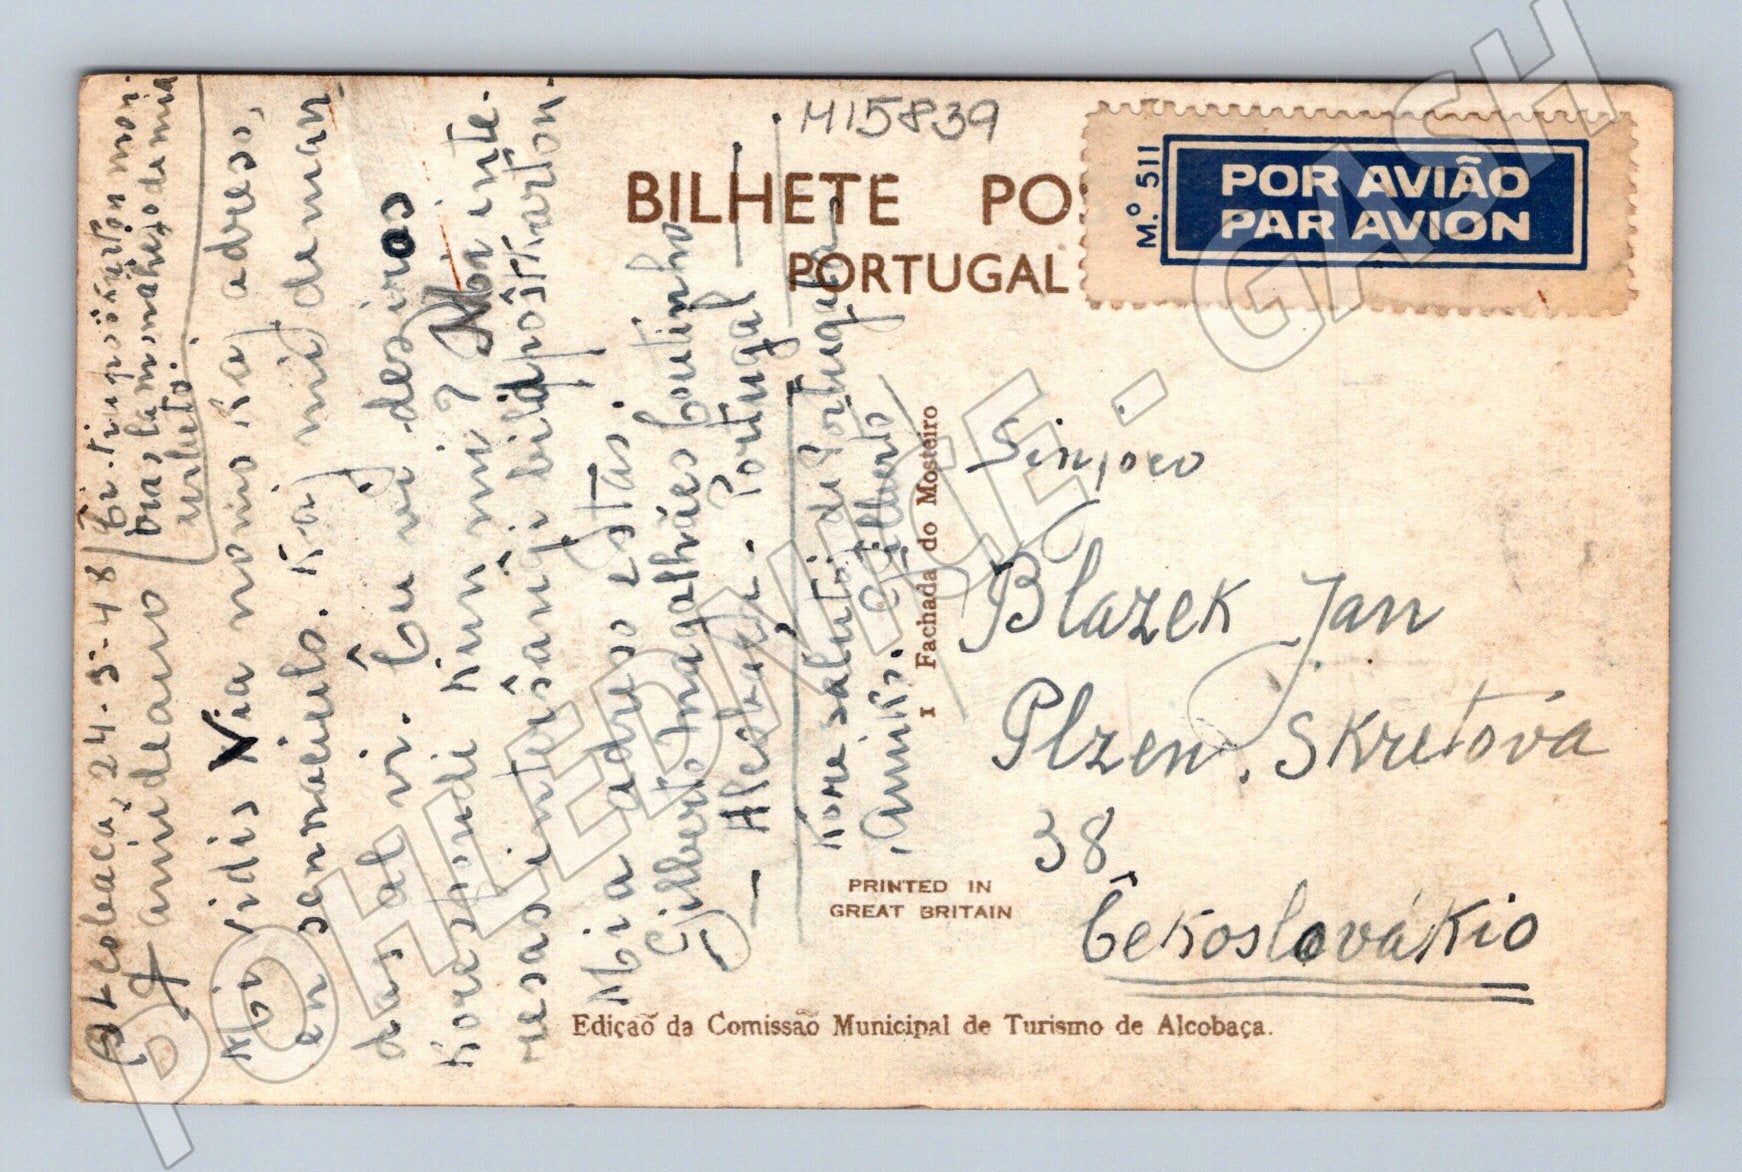 H15839
BILHETE PO
PORTUGAL
M.º 511
POR AVIÃO
PAR AVION
Alcobaça, 24-5-48
Ĉi tiu poŝtkarton mon
tras la monaĥejo de mia
urbeto.
Amideano
Mi vidis Via nomo kaj adreso,
en sennaciulo. Kaj mi deman
das al vi. Ĉu vi deziras
korespondi kun mi? Mi inte
resas interŝanĝi bildpoŝtkarton.
Mia adreso estas:
Gilberto Magalhães Coutinho
- Alcobaça - Portugal
Kore salutoj de Portugala
Amiko. Gilberto
1 Fachada do Mosteiro
Sinjoro
Blazek Jan
Plzen, Skretova
38
Ĉekoslovákio
PRINTED IN
GREAT BRITAIN
Edição da Comissão Municipal de Turismo de Alcobaça.
POHLEDNICE - GASH